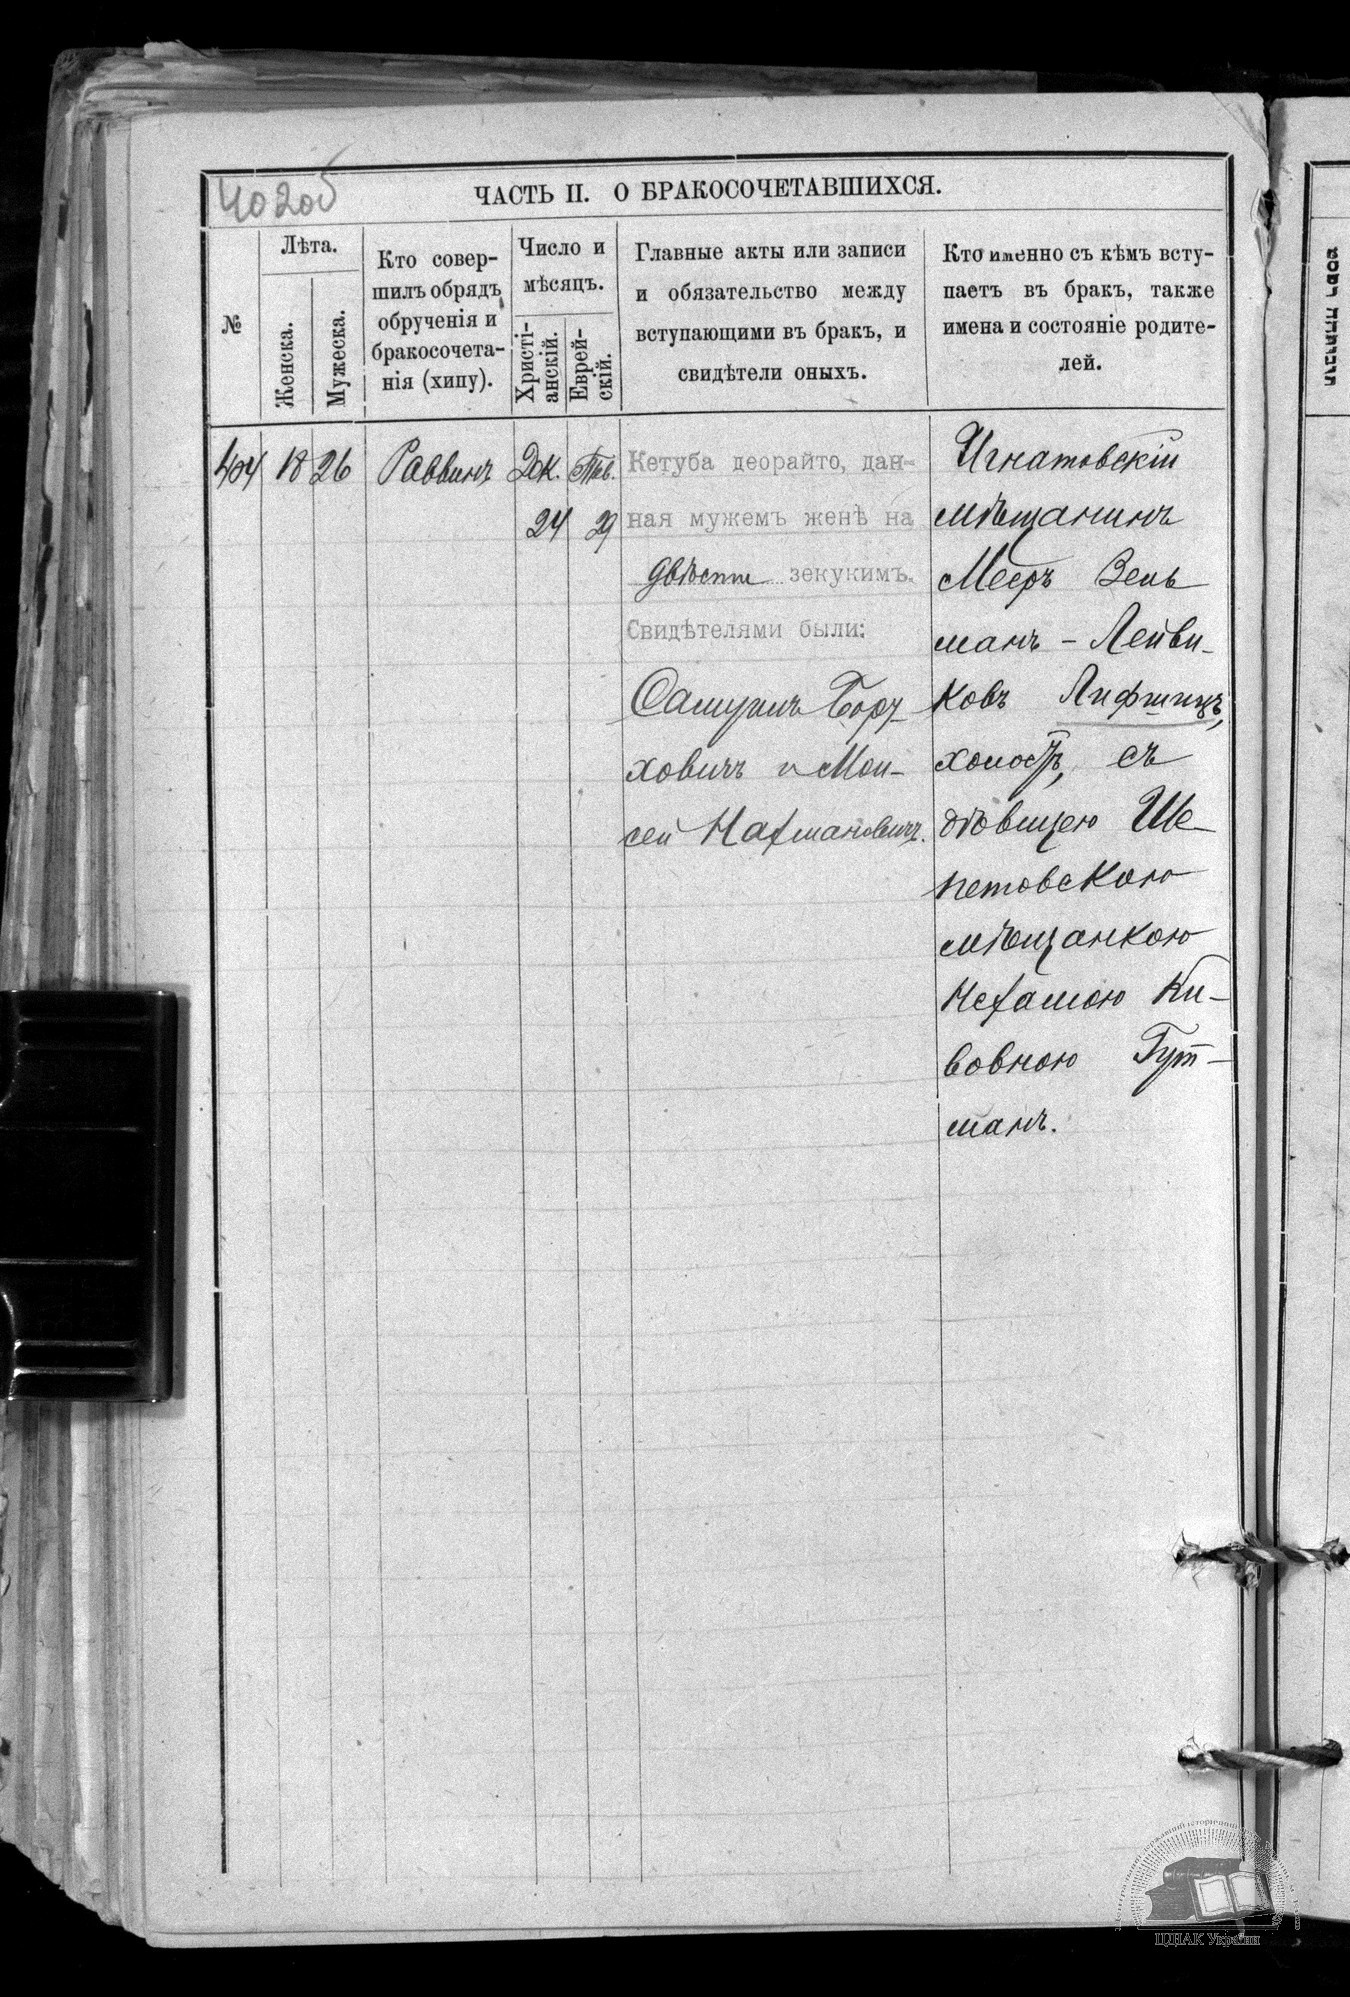 402об
ЧАСТЬ II. О БРАКОСОЧЕТАВШИХСЯ.
№
Лѣта.
Женска.
Мужеска.
Кто совер-
шилъ обрядъ
обрученія и
бракосочета-
нія (хипу).
Число и
мѣсяцъ.
Христі-
анскій.
Еврей-
скій.
Главные акты или записи
и обязательство между
вступающими въ бракъ, и
свидѣтели оныхъ.
Кто именно съ кѣмъ всту-
паетъ въ бракъ, также
имена и состояніе родите-
лей.
404
18
26
Раввинъ
Дек.
24
Тев.
29
Кетуба деорайто, дан-
ная мужемъ женѣ на
двѣсти зекукимъ.
Свидѣтелями были:
Самуилъ Бору-
ховичъ и Мои-
сей Нахмановичъ.
Игнатовскій
мѣщанинъ
Мееръ Зель
манъ - Лейви-
ковъ Лифшицъ,
холостъ, съ
дѣвицею Ше-
петовскою
мѣщанкою
Нехамою Ки-
вовною Гут-
манъ.
ЦДІАК України